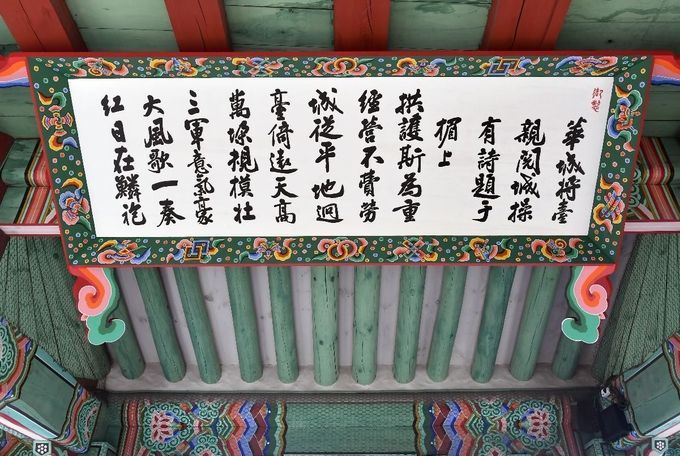 御製
華城將臺
親閱城操
有詩題于
楣上
拱護斯為重
經營不費勞
城從平地迥
臺倚遠天高
萬垜規模壯
三軍意氣豪
大風歌一奏
紅日在鱗袍